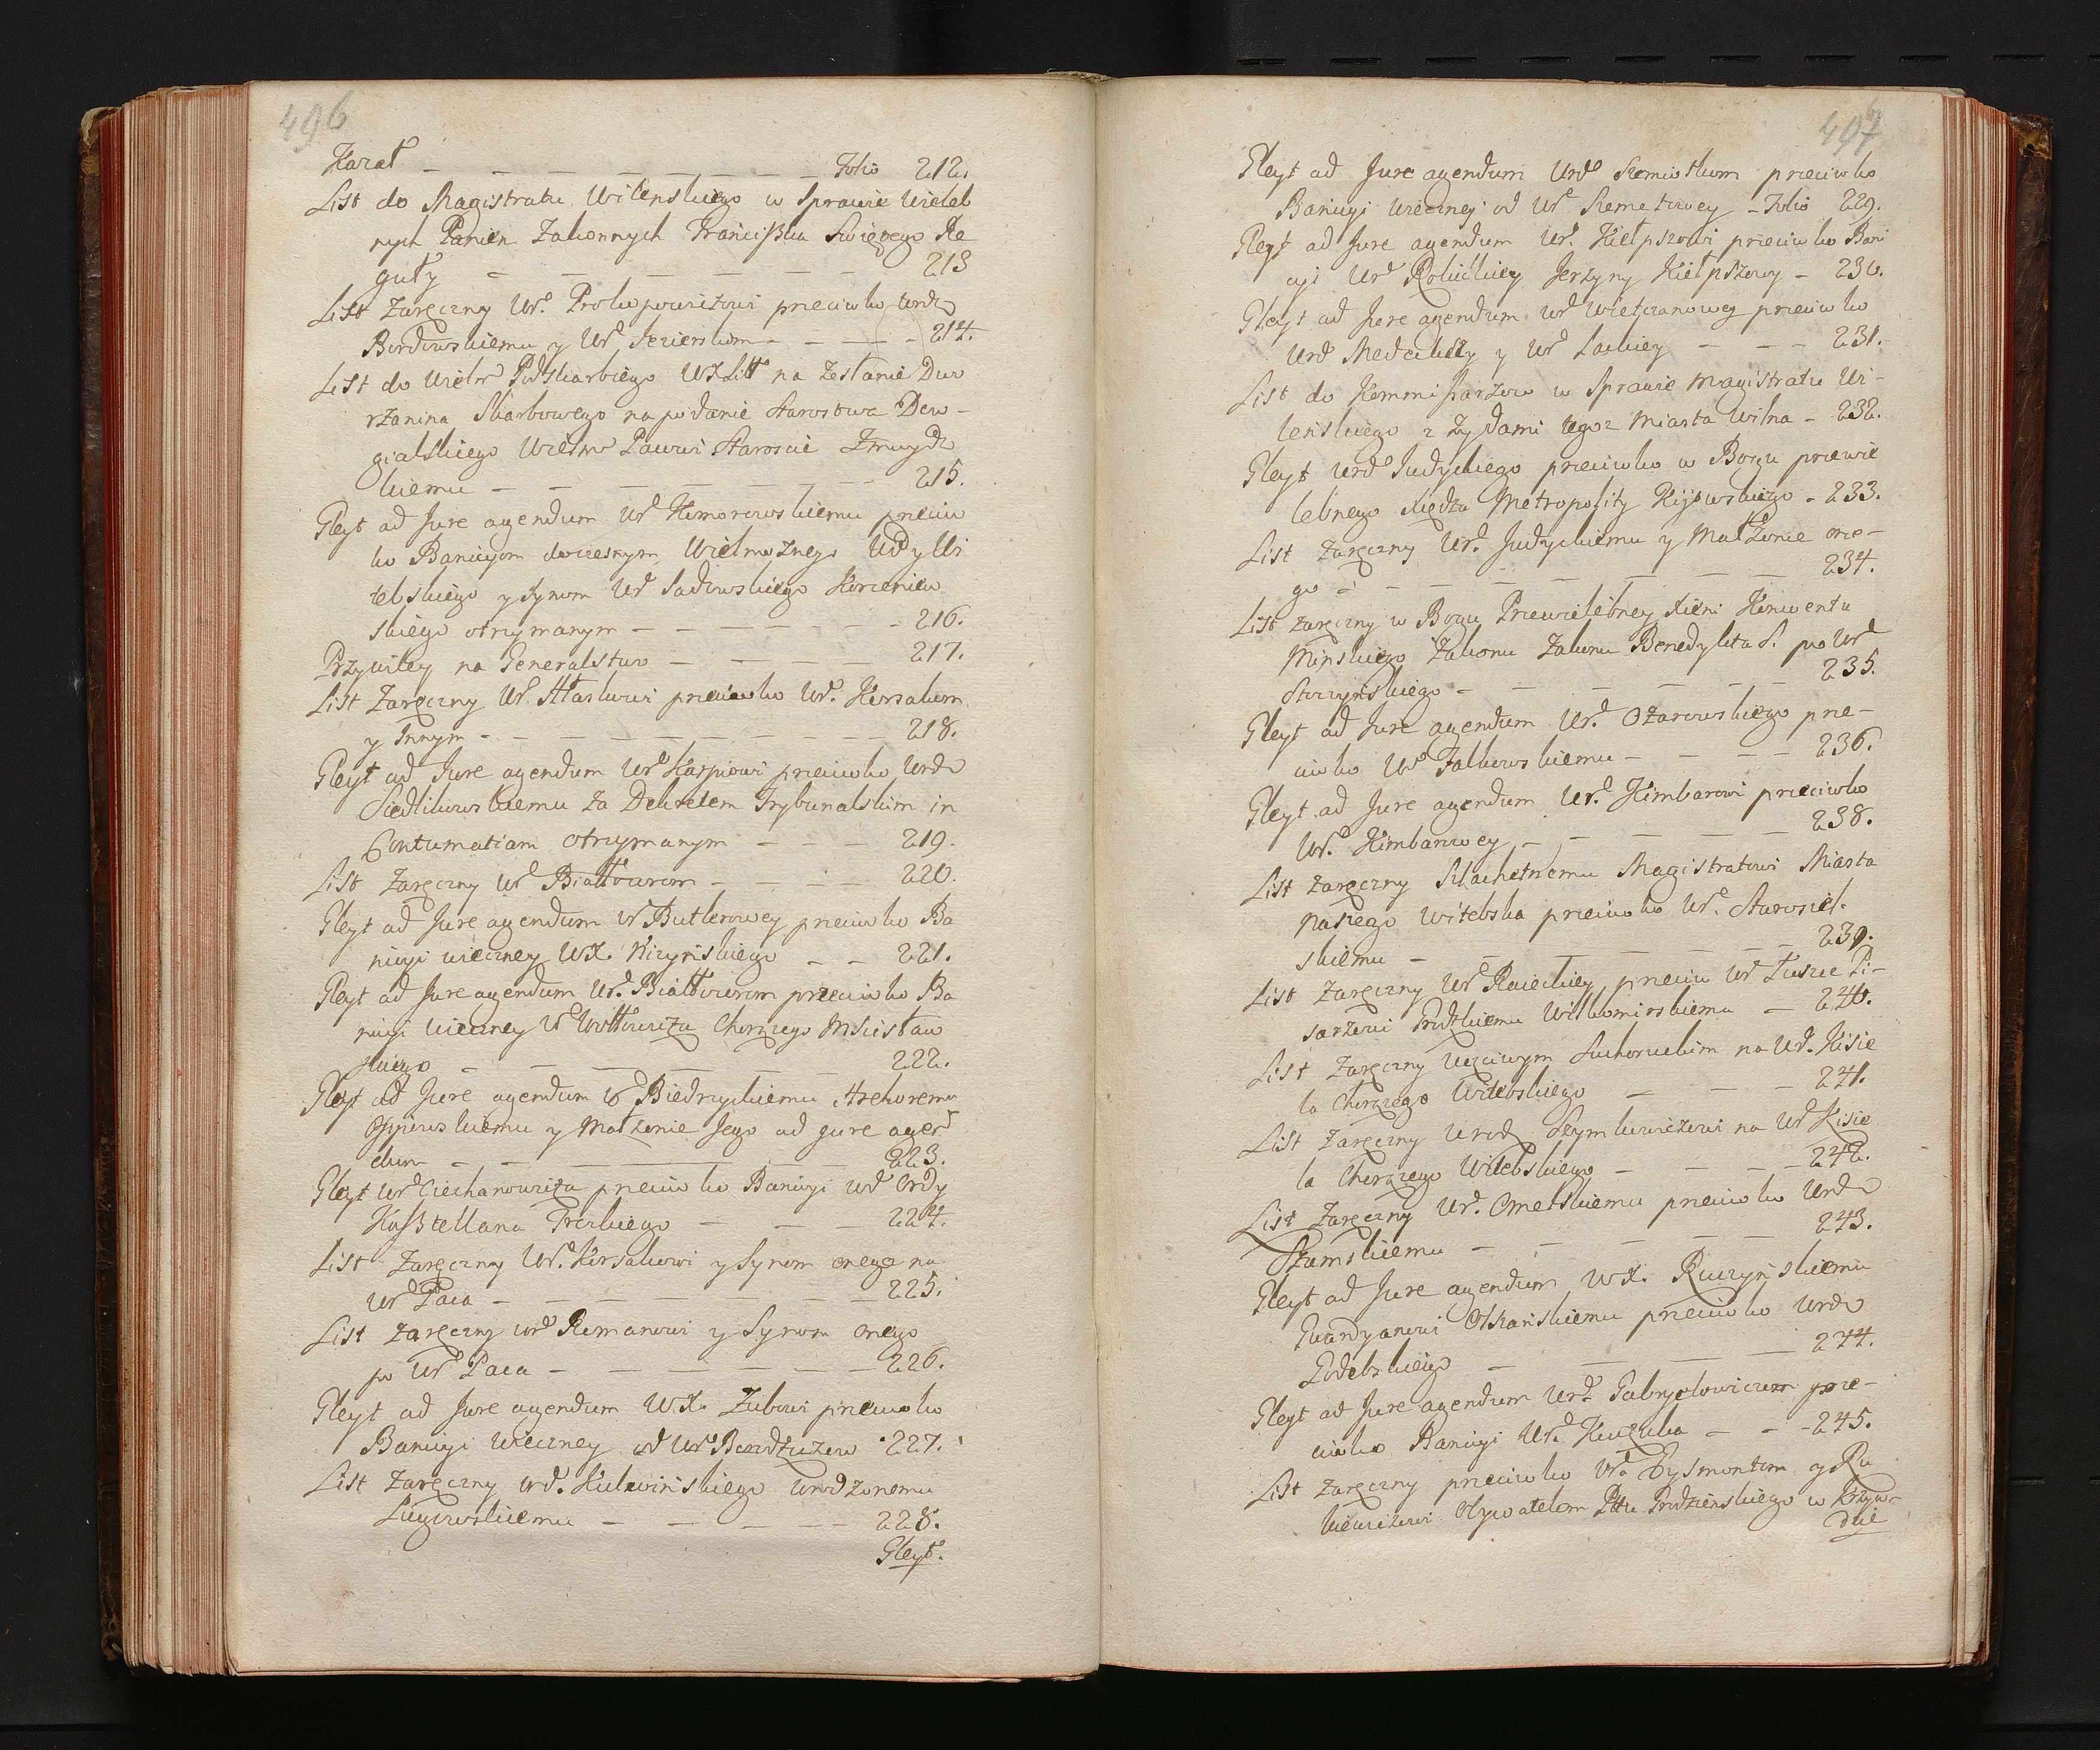 496
Karał — — — — — — — — Folio 212.
List do Magistratu Wilenskiego w Sprawie Wieleb
nych Panien Zakonnych Franciszka Swiętego Re
guły — — — — — — 213
List Zaręczny Ur. Prokopowiczowi przeciwko Urodz
Bordowskiemu y Ur. Jezierskom — — — 214.
List do Wielm Podskarbiego WXLitt na Zesłanie Dwo
rzanina Skarbowego na podanie Starostwa Dew-
gialskiego Wielm Pacowi Staroscie Zmuydz
kiemu — — — — — — — 215.
Gleyt ad Jure agendum Ur Komorowskiemu przeciw
ko Banicyom doczesnym Wielmożnego Wdy Wi
tebskiego y Synom Ur Sadowskiego Korzeniew
skiego otrzymanym — — — — — — 216.
Przywiley na Generalstwo — — — — 217.
List Zaręczny Ur. Hłaskowi przeciwko Ur. Korsakom
y Innym — — — — — — — — 218.
Gleyt ad Jure agendum Ur Karpiowi przeciwko Urodz
Siedlikowskiemu za Dekretem Trybunalskim in
Contumatiam otrzymanym — — — 219.
List Zaręczny Ur Białłozorom — — — — 220.
Gleyt ad Jure agendum Ur Butlerowey przeciwko Ba
nicyi wieczney WX. Kizyńskiego — — 221.
Gleyt ad Jure agendum Ur. Białłozorom przeciwko Ba
nicyi wieczney Ur Wołłowicza Chorążego Mscisław
skiego — — — — — — 222.
Gleyt ad Jure agendum Ur Biedrzyckiemu
y Małzonie Jego ad jure agen
dum — — — — — 223.
Gleyt Ur Ciechanowicza przeciwko Banicyi Ur Ordy
Kasztellana Trockiego — — — 224.
List Zaręczny Ur. Korsakowi y Synom onego na
Ur Paca — — — — — — 225.
List Zaręczny Ur Romanowi y Synom onego
po Ur Paca — — — — — — 226.
Gleyt ad Jure agendum WX. Zubowi przeciwko
Banicyi Wieczney od Ur 227.
List Zaręczny Ur. Kulwińskiego Urodzonemu
Ługowskiemu — — — — — 228.
Gleyt.
497
Gleyt ad Jure agendum Urod Siemiotkom przeciwko
Banicyi wieczney od Ur Remerowey — Folio 229.
Gleyt ad Jure agendum Ur. Kiełpszowi przeciwko Bani
cyi Ur Jerzyny Kiełpszowey — 230.
Gleyt ad Jure agendum Ur przeciwko
Urod y Ur Lackiey — — — 231.
List do Kommissarzow w Sprawie Magistratu Wi-
lenskiego z Zydami tegoz Miasta Wilna — 232.
Gleyt Urod Judyckiego przeciwko w Bogu przewie
lebnego Xiędza Metropolity Kijowskiego — 233.
List Zaręczny Ur. Judyckiemu y Małżonie one-
go — — — — — — — — — 234.
List zaręczny w Bogu Przewielebney Xieni Konwentu
Minskiego Zakonu Zakonu Benedykta S. po Ur
— — — — — — 235.
Gleyt ad Jure agendum Ur. Ożarowskiego prze-
ciwko Ur Falkowskiemu — — — — 236.
Gleyt ad Jure agendum Ur. Kimbarowi przeciwko
Ur. Kimbarowey — — — — — — 238.
List Zaręczny Szlachetnemu Magistratowi Miasta
naszego Witebska przeciwko Ur. Starosiel-
skiemu — — — — — — — 239.
List Zaręczny Ur Raieckiey przeciw Ur Tuszce Pi-
sarzowi Grodzkiemu Wiłkomirskiemu — 240.
List Zaręczny Uczciwym Suchoruckim na Ur. Kisie
la Chorążego Witebskiego — — — 241.
List Zaręczny Urod Szymkowiczowi na Ur Kisie
la Chorążego Witebskiego — — — — 242.
List Zaręczny Ur. Ometskiemu przeciwko Urodz
Szumskiemu — — — — — — 243.
Gleyt ad Jure agendum WX. Ruczyńskiemu
Gwardyanowi Oszmiańskiemu przeciwko Urodz
Podobskiego — — — — 244.
Gleyt ad Jure agendum Urod. Gabryelowiczom prze-
ciwko Banicyi Ur. — — — 245.
List Zaręczny przeciwko Ur. Eysmontom y Ru
kiewiczowi Obywatelom Pttu Grodzienskiego w Krzyw-
dzie